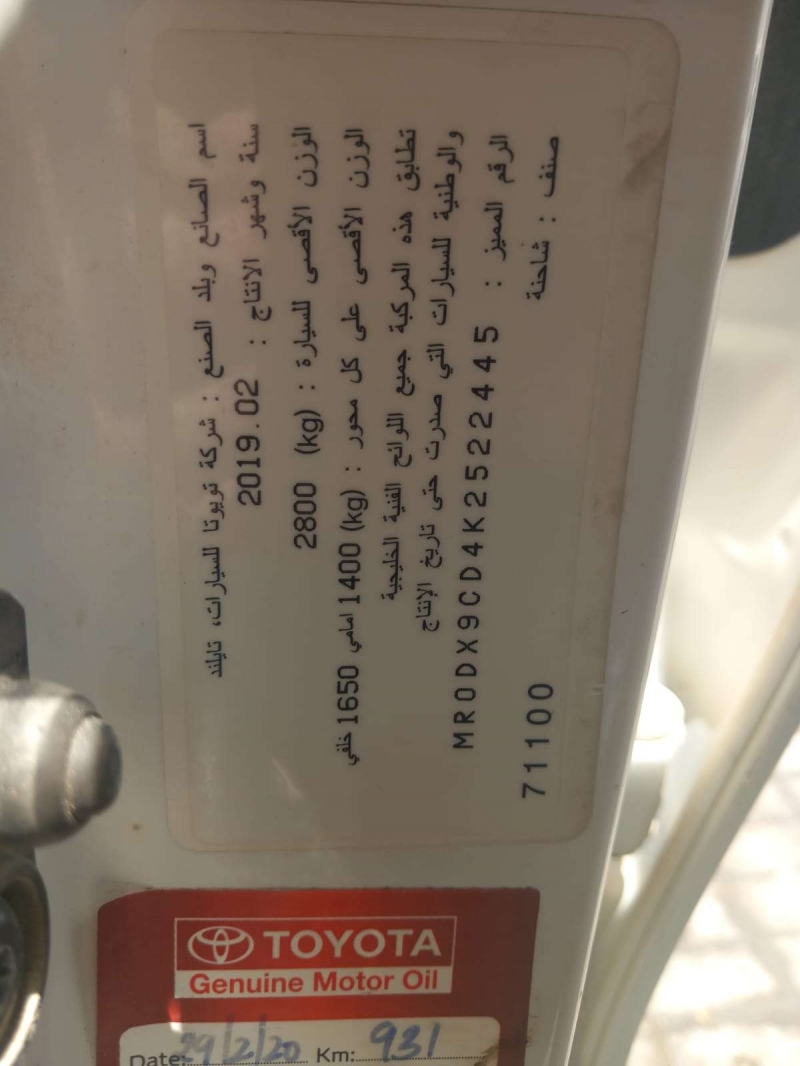 اسم الصانع وبلد الصنع : شركة تويوتا للسيارات، تايلند
سنة وشهر الانتاج : 2019.02
الوزن الأقصى للسيارة : (kg) 2800
الوزن الأقصى على كل محور : (kg) 1400 امامي 1650 خلفي
تطابق هذه المركبة جميع اللوائح الفنية الخليجية
والوطنية للسيارات التي صدرت حتى تاريخ الإنتاج
الرقم المميز : MR0DX9CD4K2522445
صنف : شاحنة
71100
TOYOTA
Genuine Motor Oil
Date: 29/2/20 Km: 931